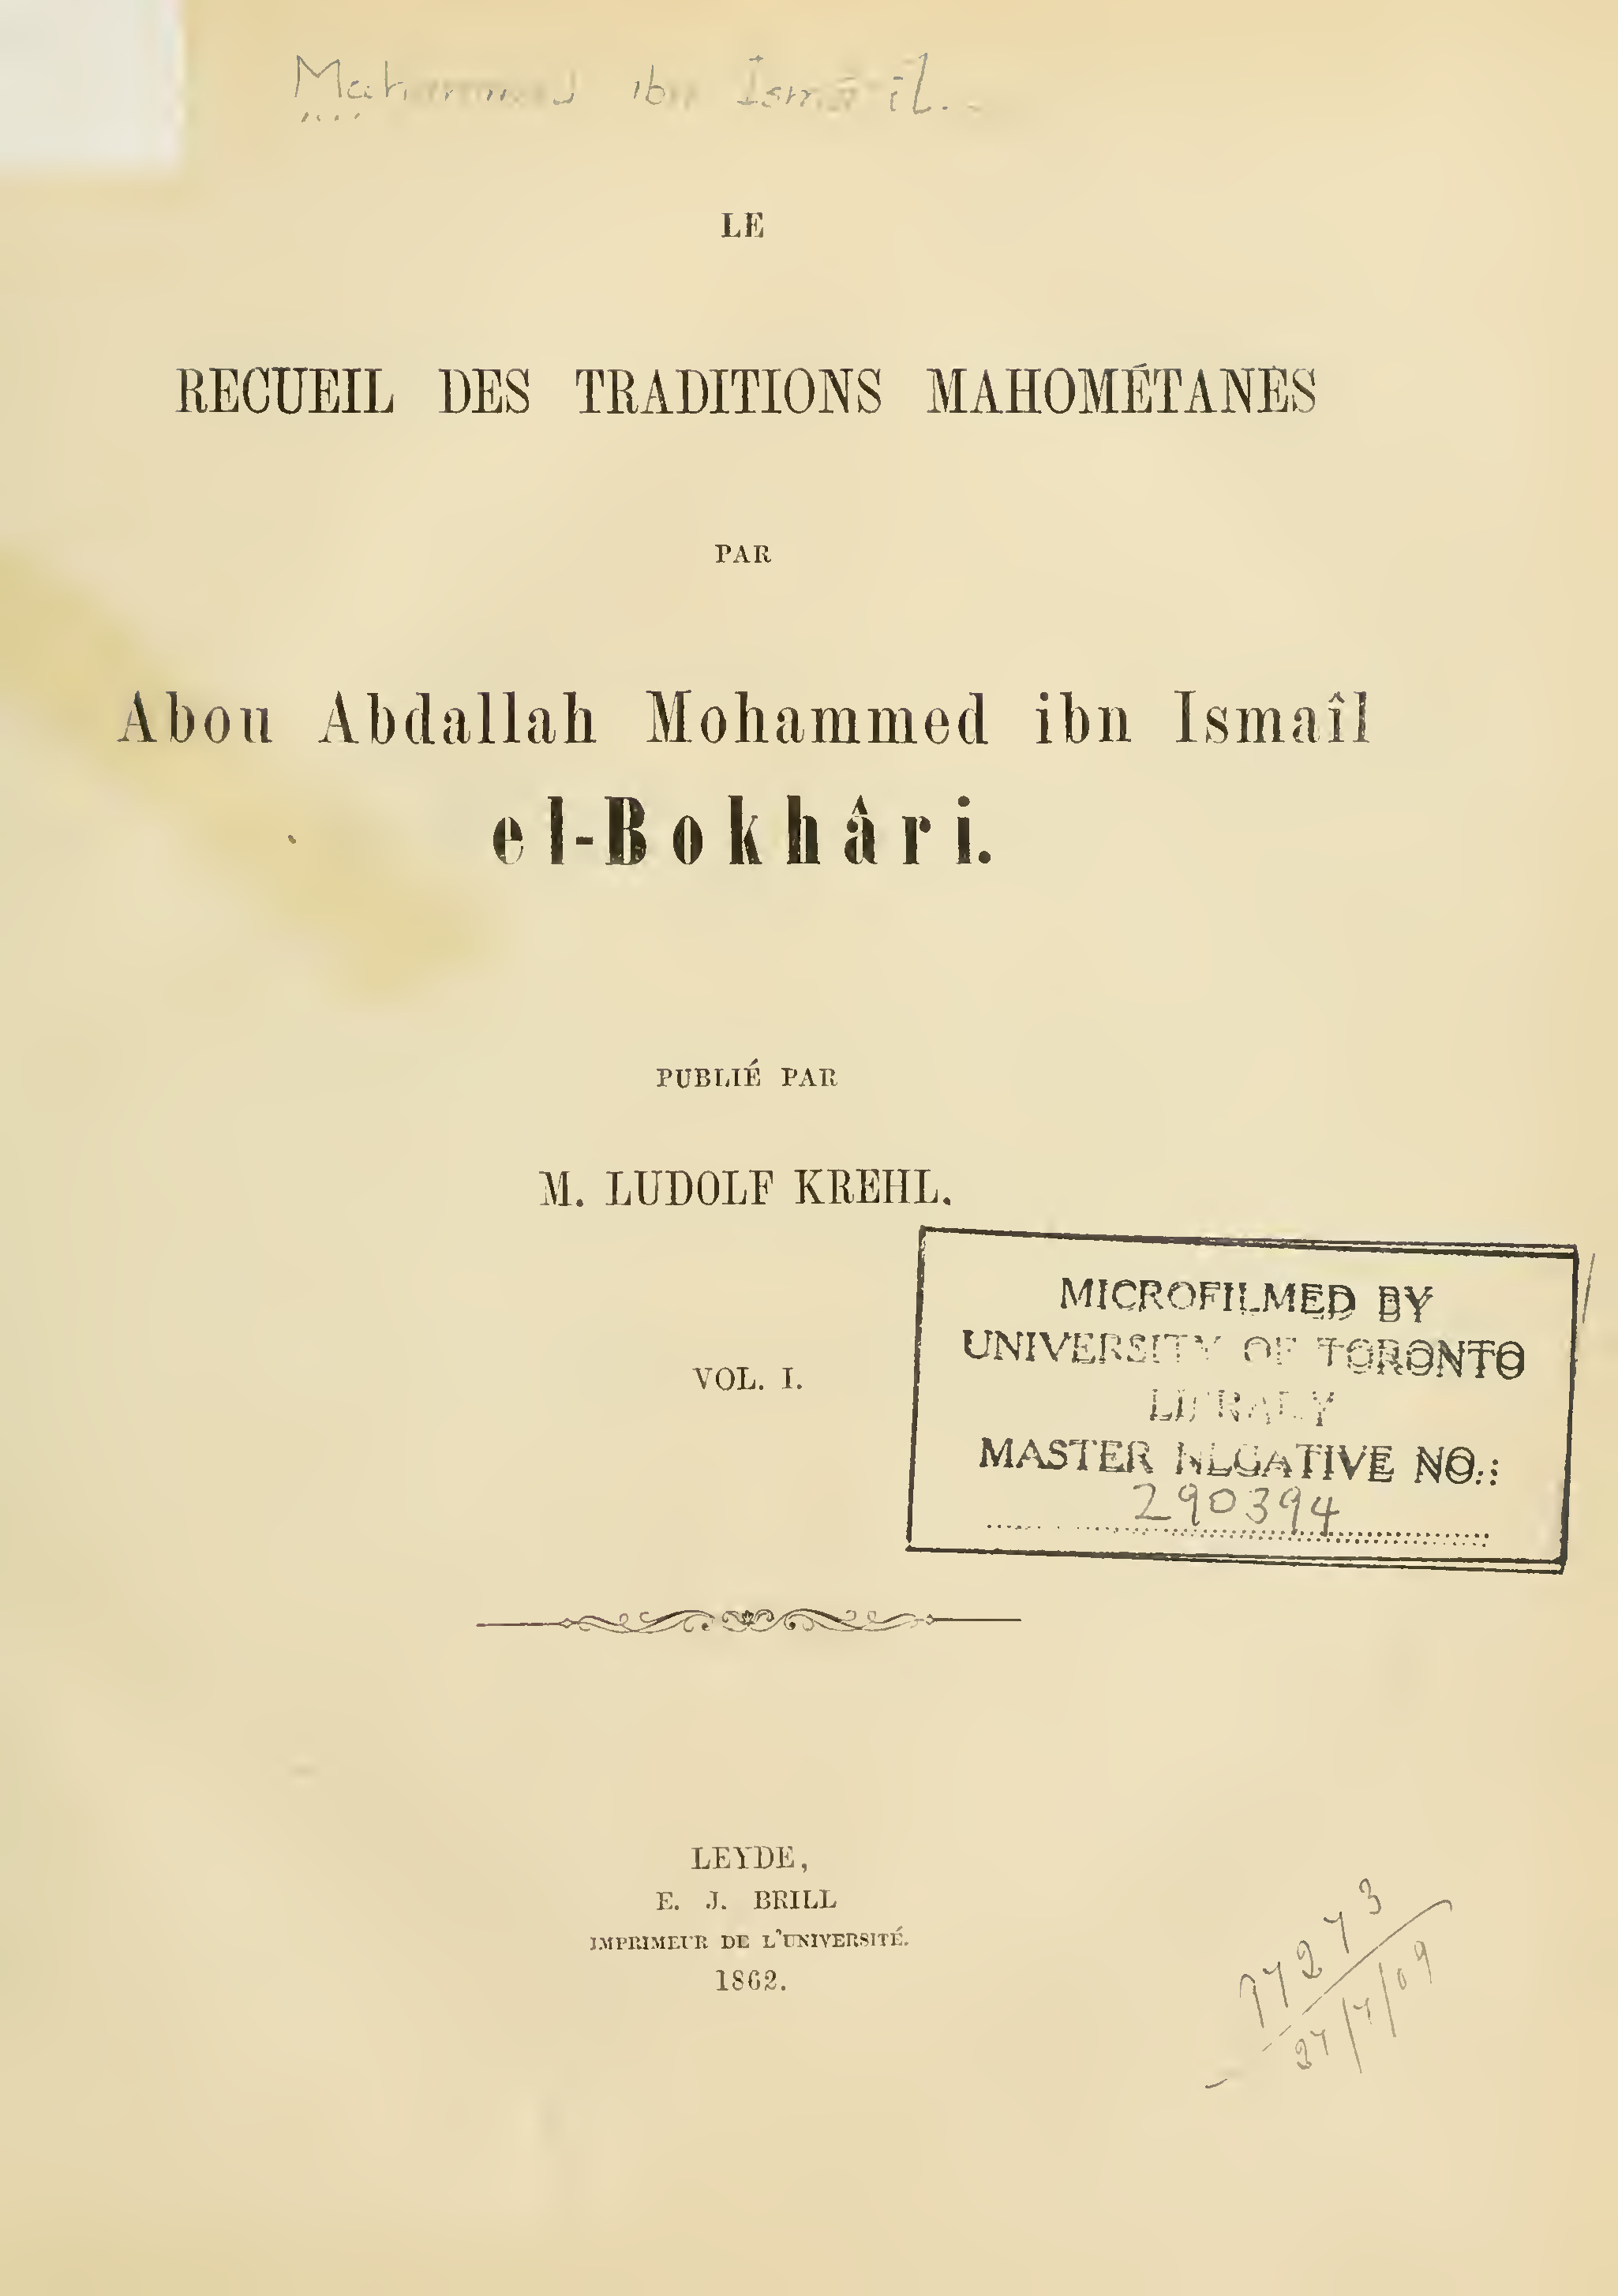 Mahammad ibn Ismā'īl.
LE
RECUEIL DES TRADITIONS MAHOMÉTANES
PAR
Abou Abdallah Mohammed ibn Ismaîl
el-Bokhâri.
PUBLIÉ PAR
M. LUDOLF KREHL.
VOL. I.
MICROFILMED BY
UNIVERSITY OF TORONTO
LIBRARY
MASTER NEGATIVE NO.:
290394
LEYDE,
E. J. BRILL
IMPRIMEUR DE L'UNIVERSITÉ.
1862.
97273
27/7/09